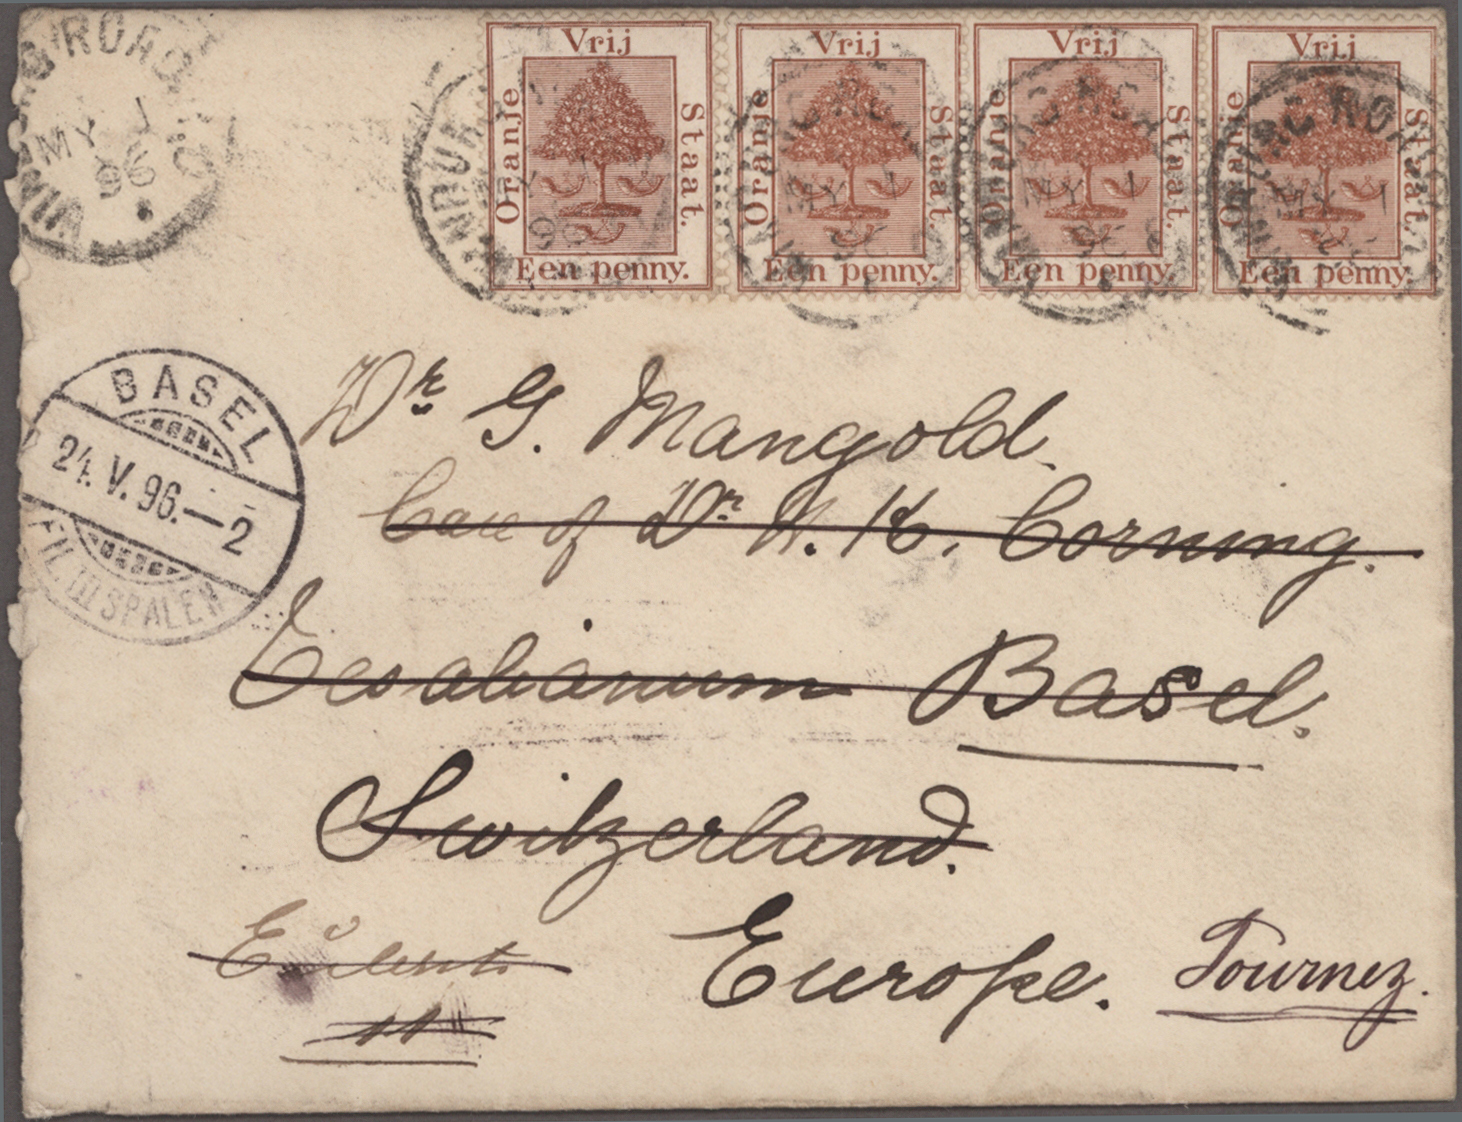 Vrij
Oranje
Staat.
Een penny.
Vrij
Oranje
Staat.
Een penny.
Vrij
Oranje
Staat.
Een penny.
Vrij
Oranje
Staat.
Een penny.
ROAD
MY 1
96
BASEL
24. V. 96.—2
FIL. III SPALEN
Dr G. Mangold.
Care of Dr H. K. Corning.
Basel.
Switzerland.
Europe. Tournez.
11